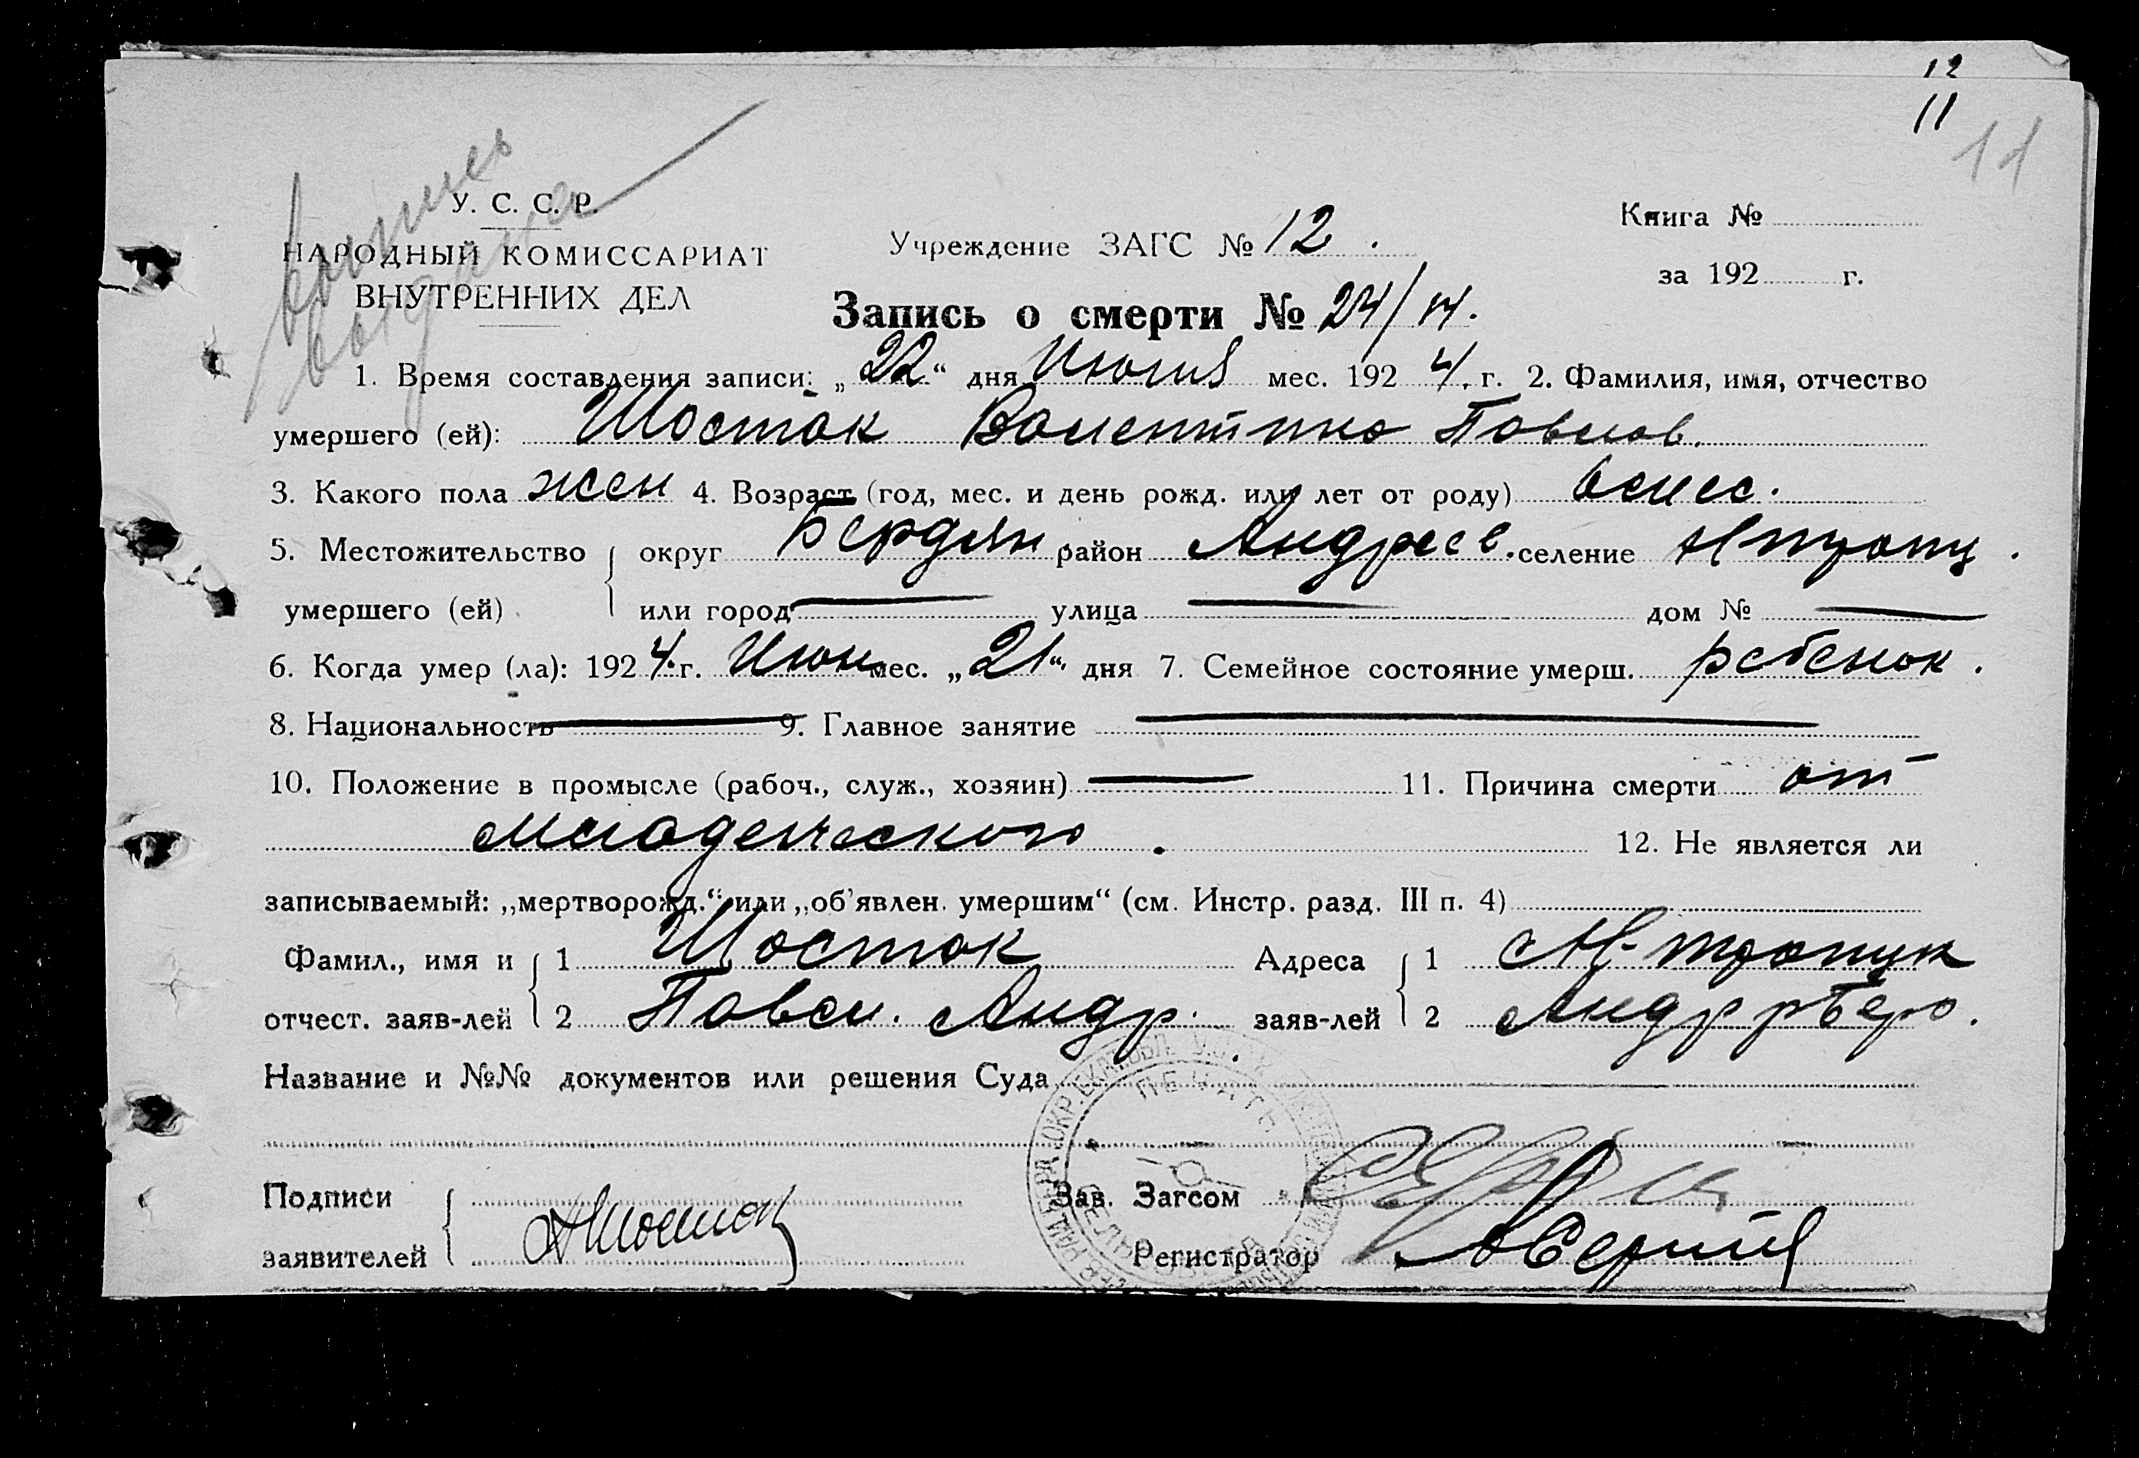 12
11
11
выпись
выдана
У. С. С. Р.
НАРОДНЫЙ КОМИССАРИАТ
ВНУТРЕННИХ ДЕЛ
Учреждение ЗАГС № 12.
Книга №
за 192 г.
Запись о смерти № 24/
1. Время составления записи: „22“ дня Июня мес. 1924. г. 2. Фамилия, имя, отчество
умершего (ей): Шостак Валентина Павлов.
3. Какого пола жен 4. Возраст (год, мес. и день рожд. или лет от роду)
5. Местожительство округ Бердян район Андреев. селение
умершего (ей) или город — улица — дом № —
6. Когда умер (ла): 1924. г. Июн мес. „21“ дня 7. Семейное состояние умерш. ребенок.
8. Национальность — 9. Главное занятие —
10. Положение в промысле (рабоч., служ., хозяин) — 11. Причина смерти от
младенческого. 12. Не является ли
записываемый: „мертворожд.“ или „об'явлен. умершим“ (см. Инстр. разд. III п. 4)
Фамил., имя и 1 Шостак Адреса 1
отчест. заяв-лей 2 Павел. Андр. заяв-лей 2
Название и №№ документов или решения Суда
ПЕЧАТЬ
Подписи Зав. Загсом
заявителей Шостак Регистратор